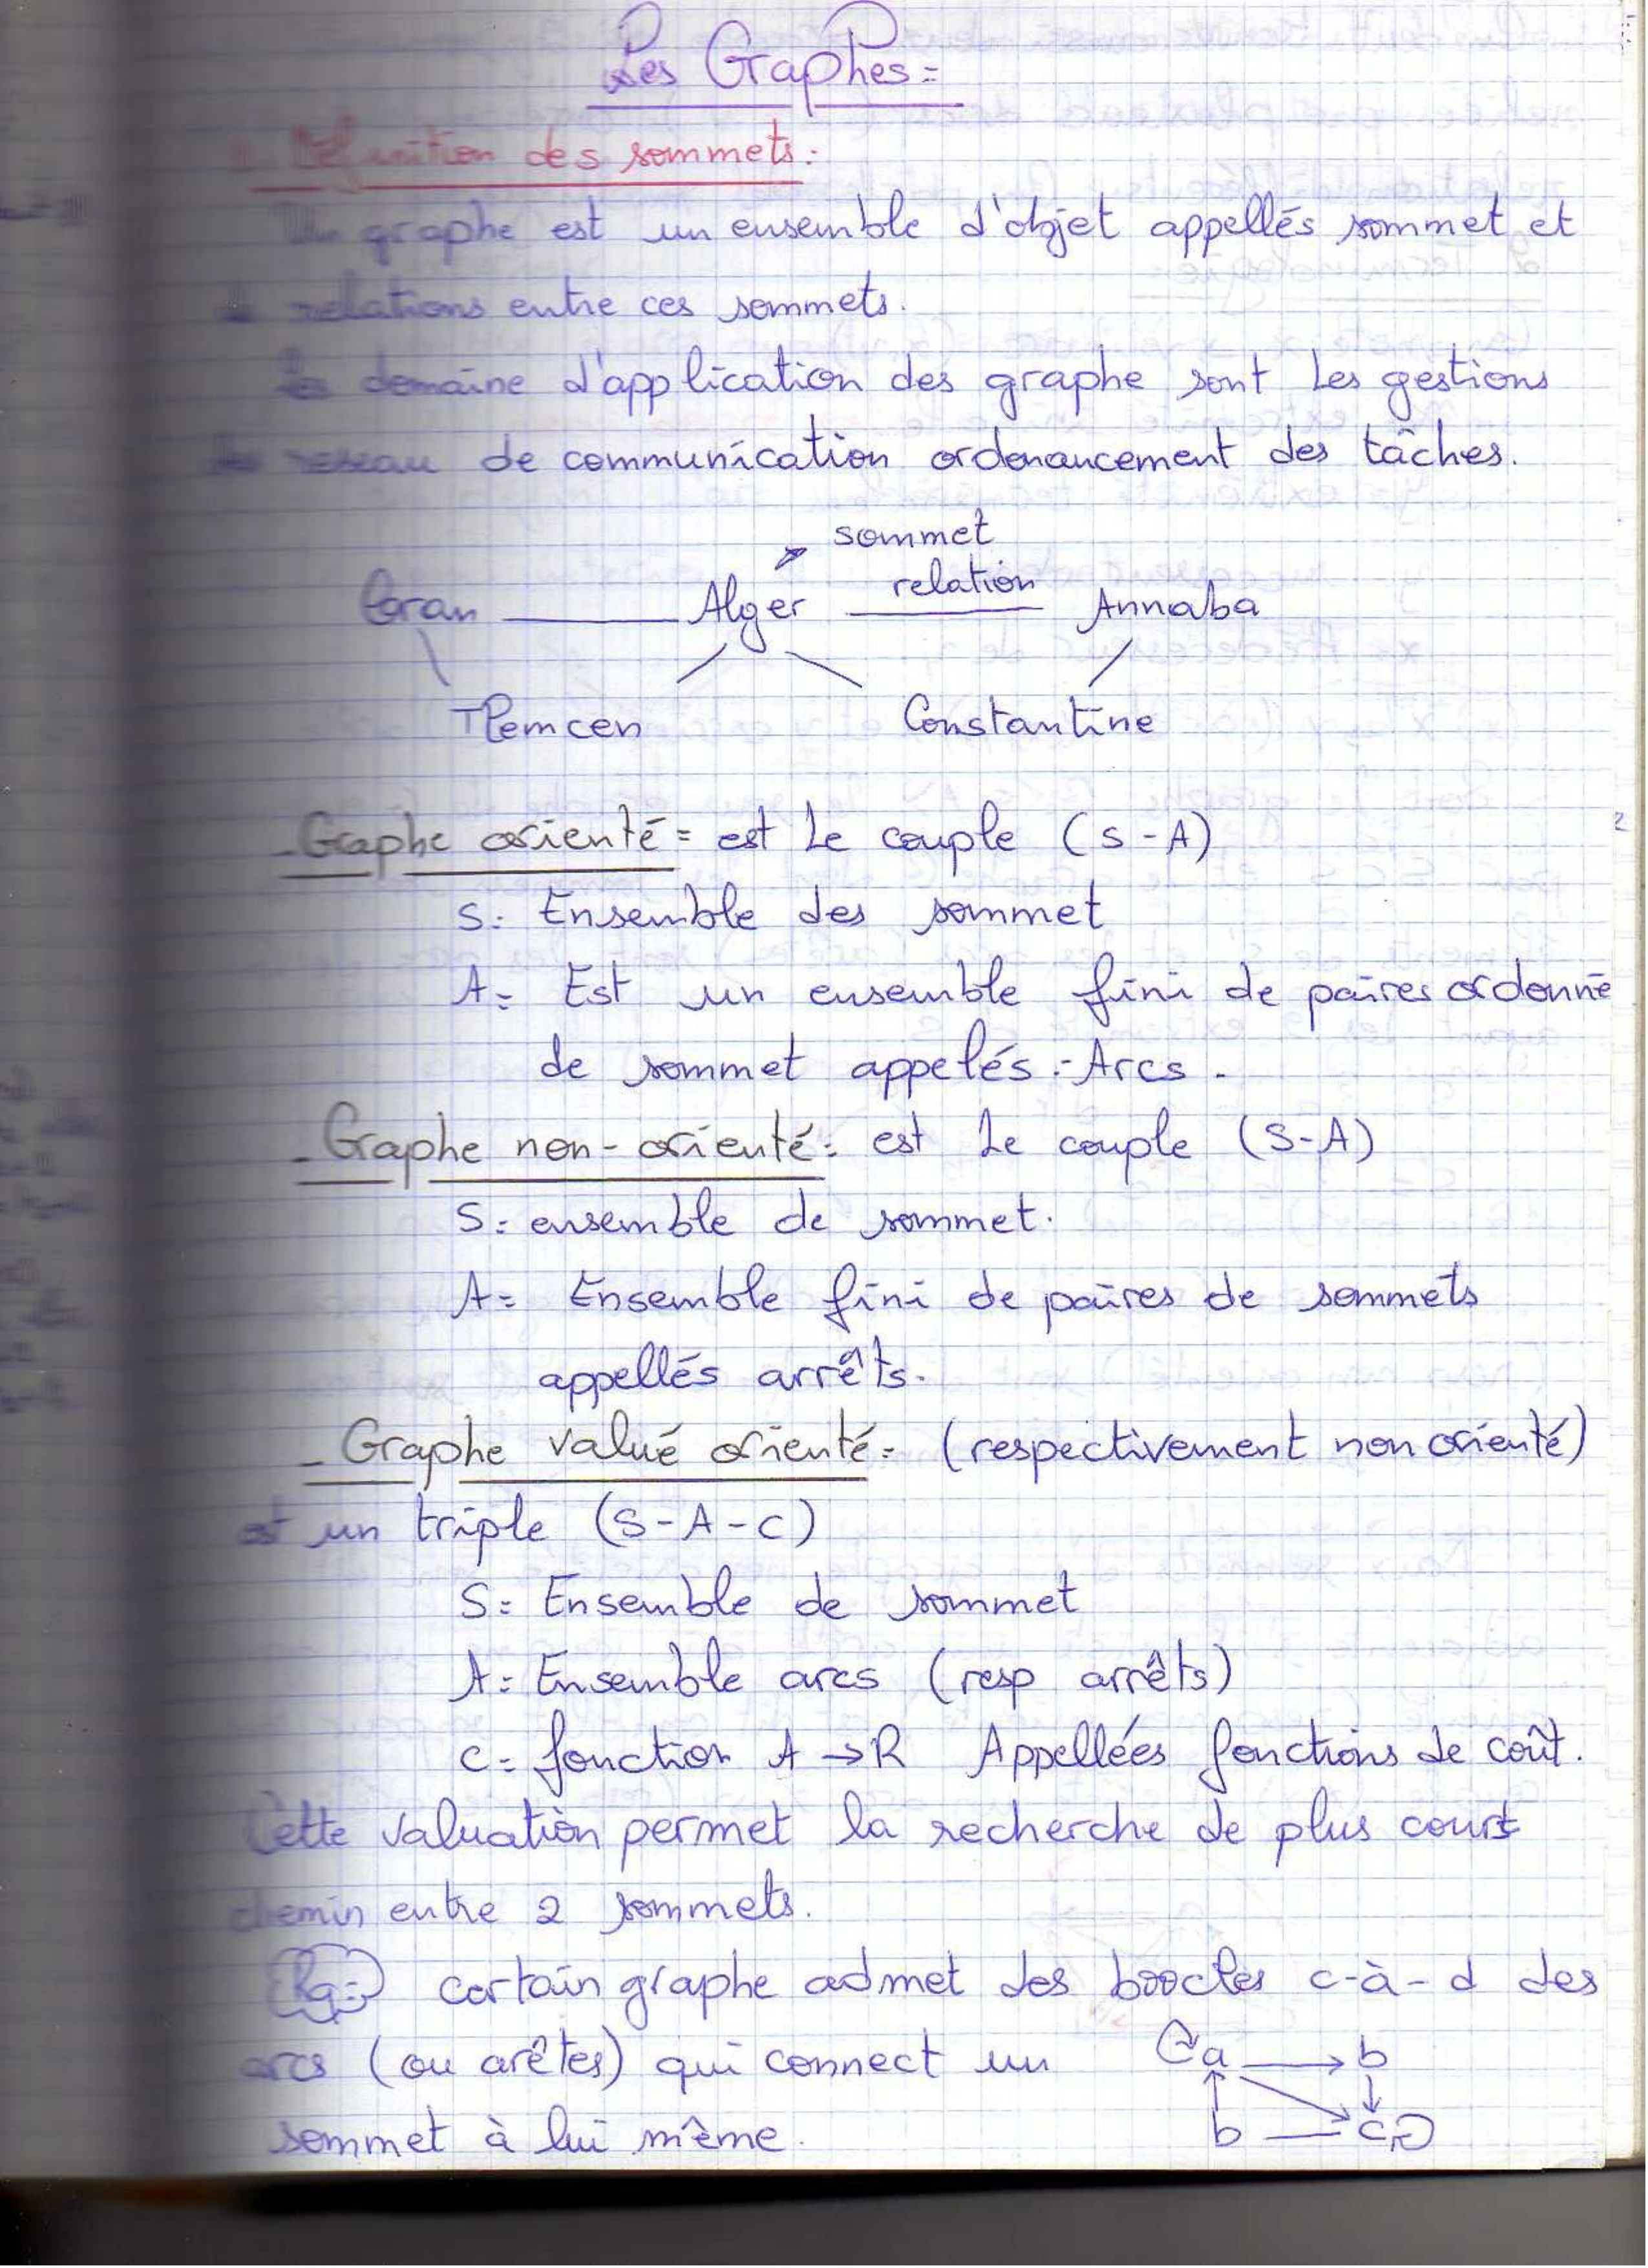 Les Graphes =
Définition des sommets :
Un graphe est un ensemble d'objet appellés sommet et
relations entre ces sommets.
domaine d'application des graphe sont Les gestions
reseau de communication ordonancement des tâches.
sommet
Oran Alger relation Annaba
Tlemcen Constantine
- Graphe orienté = est Le couple (S - A)
S : Ensemble des sommet
A = Est un ensemble fini de paires ordonné
de sommet appelés : Arcs .
- Graphe non-orienté : est Le couple (S-A)
S : ensemble de sommet.
A = Ensemble fini de paires de sommets
appellés arrêts.
- Graphe valué orienté = (respectivement non orienté)
est un triple (S - A - C)
S = Ensemble de sommet
A = Ensemble arcs (resp arrêts)
C = fonction A → R Appellées fonctions de coût.
Cette valuation permet la recherche de plus court
chemin entre 2 sommets.
Rq : certain graphe admet des boocles c-à-d des
arcs (ou arêtes) qui connect un
sommet à lui même.
a b
b c